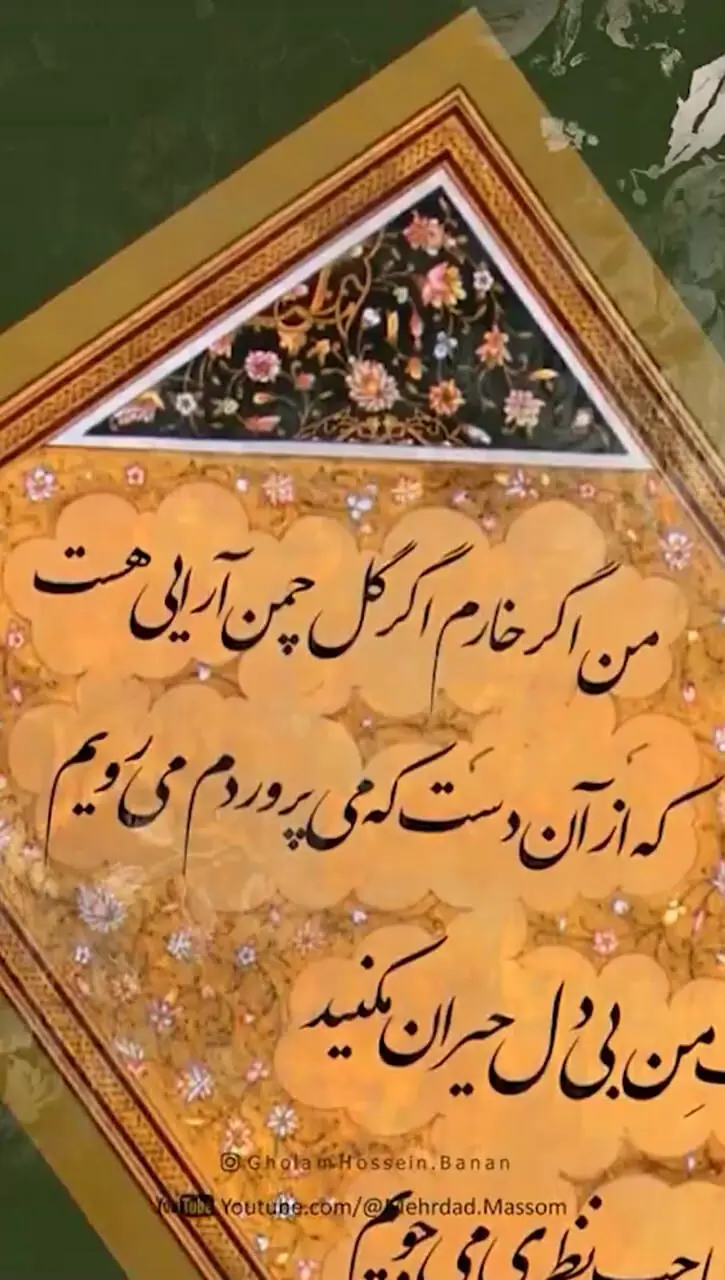 من اگر خارم اگر گل چمن آرایی هست
که اَز آن دسَت که می پروردم می رویم
منِ بی دل حیران مکنید
نظری می جویم
GholamHossein.Banan
YouTube Youtube.com/@Mehrdad.Massom